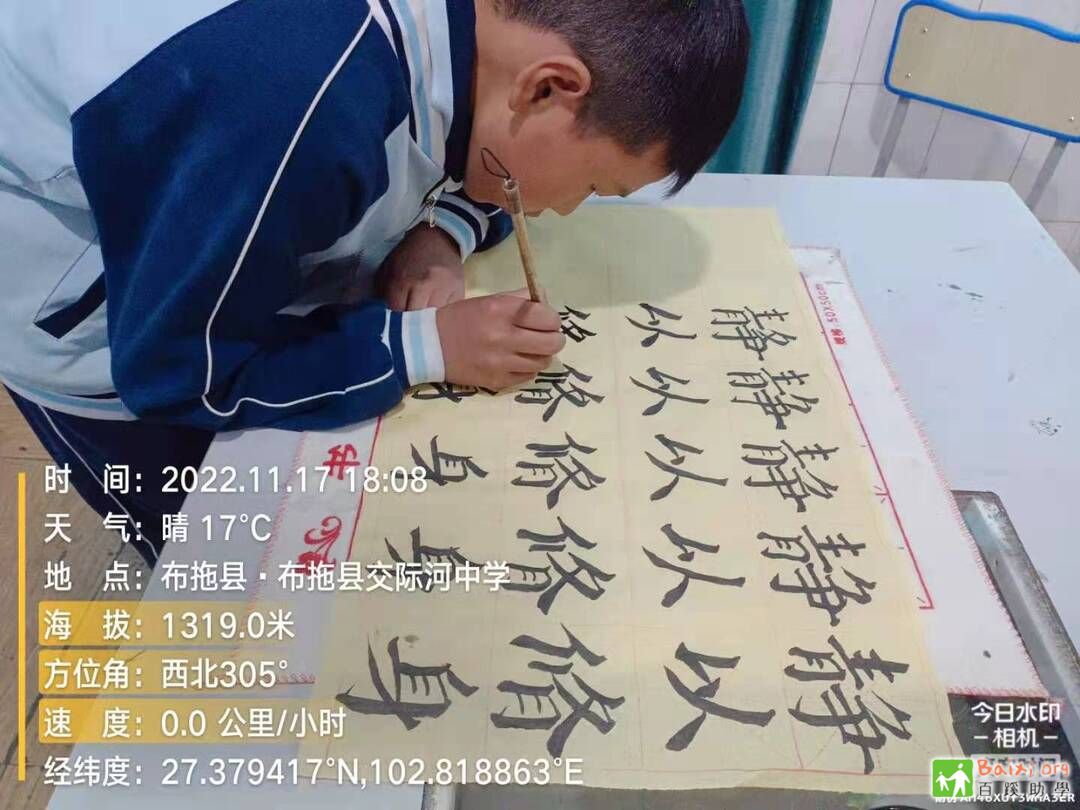 静静静静静
以以以以以
修修修修修
身身身身
50X50cm
书
时 间：2022.11.17 18:08
天 气：晴 17℃
地 点：布拖县·布拖县交际河中学
海 拔：1319.0米
方位角：西北305°
速 度：0.0 公里/小时
经纬度：27.379417°N,102.818863°E
今日水印
-相机-
Baixi.org
百蹊助學